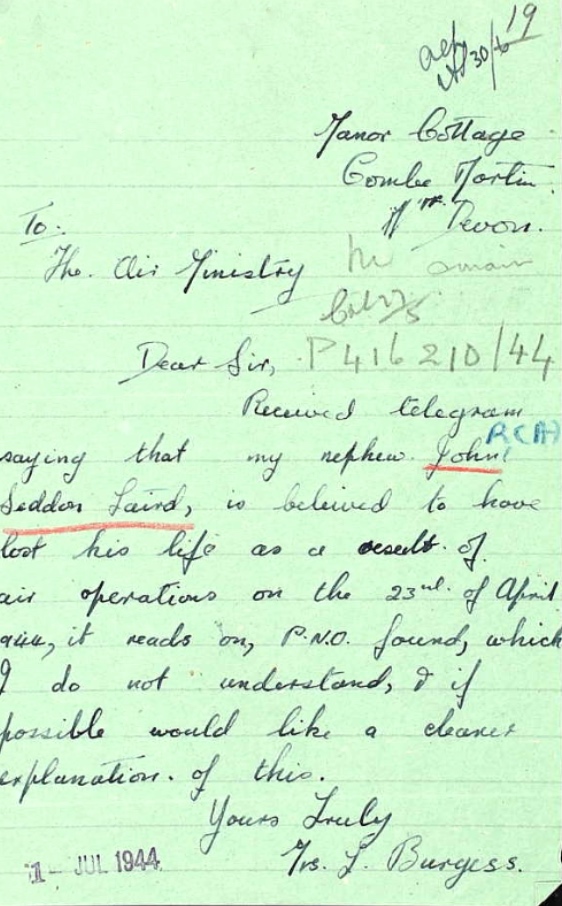 19
30/6
Manor Cottage
Combe Martin.
Nr. Devon.
To:
The. Air Ministry
P416210/44
Dear Sir,
Received telegram
RC(A)
saying that my nephew. John,
Seddon Laird, is beleived to have
lost his life as a result. of.
air operations on the 23rd. of April
1944, it reads on, P.N.O. found, which
I do not understand, & if
possible would like a clearer
explanation. of this.
Yours Truly
Mrs. L. Burgess.
1 - JUL 1944